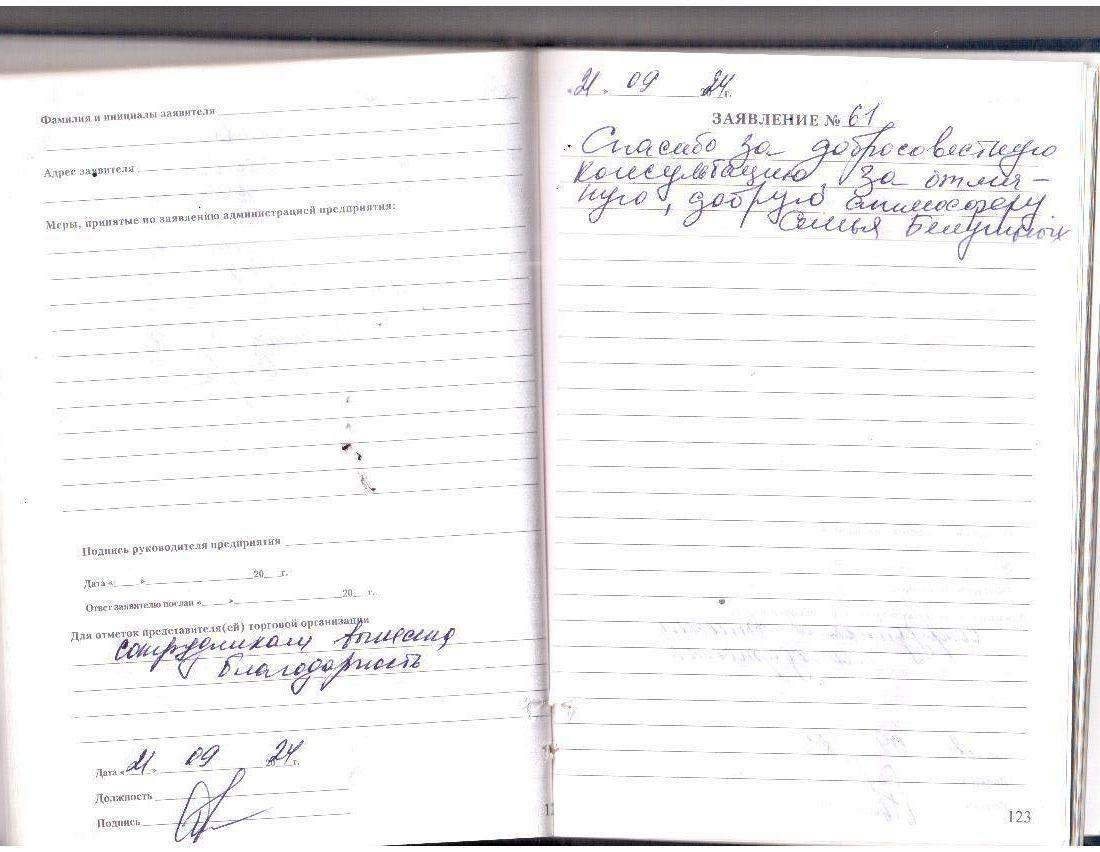 Фамилия и инициалы заявителя
Адрес заявителя
Меры, принятые по заявлению администрацией предприятия:
Подпись руководителя предприятия
Дата «____»____________20__г.
Ответ заявителю послан «____»____________20__г.
Для отметок представителя(ей) торговой организации
сотрудникам вынесена
благодарность
Дата «21» 09 2024г.
Должность
Подпись
«21» 09 2024г.
ЗАЯВЛЕНИЕ № 61
Спасибо за добросовестную
консультацию, за отлич-
ную, добрую атмосферу
Семья
123